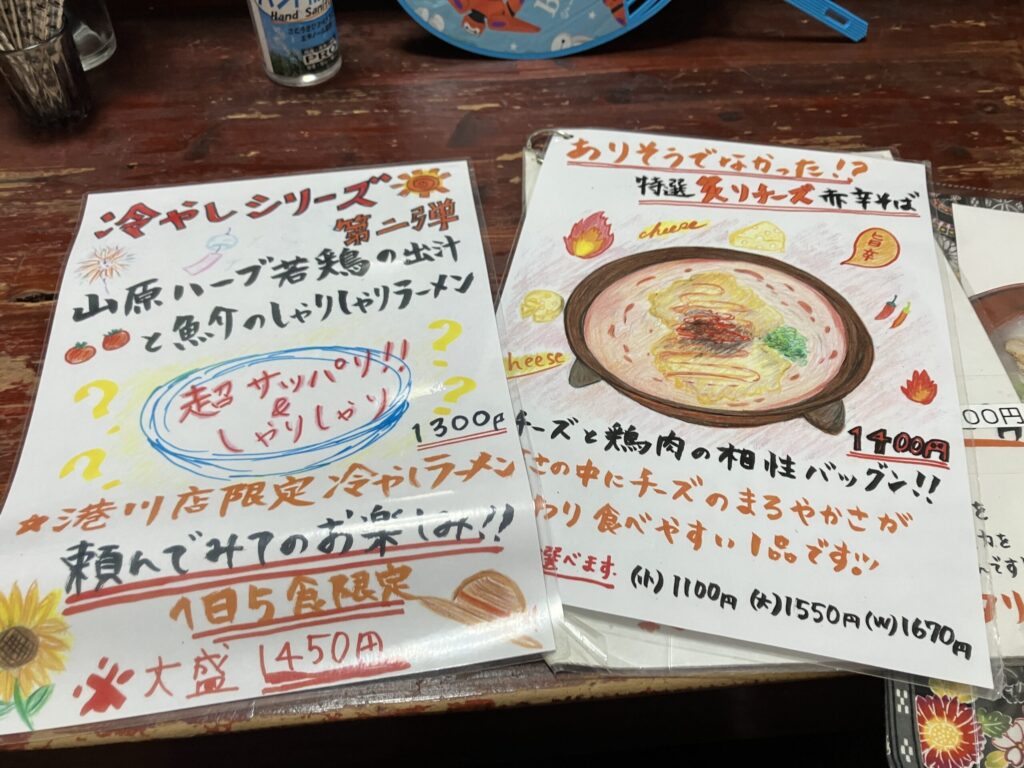 Hand Sanit
冷やしシリーズ
第二弾
山原ハーブ若鶏の出汁
と魚介のしゃりしゃりラーメン
?
?
?
?
超サッパリ!!
&
しゃりしゃり
1300円
☆港川店限定冷やしラーメン
頼んでみてのお楽しみ!!
1日5食限定
※大盛 1450円
ありそうでなかった!?
特選 炙りチーズ 赤辛そば
cheese
旨辛
cheese
1400円
チーズと鶏肉の相性バッグン!!
さの中にチーズのまろやかさが
わり食べやすい1品です!!
選べます (小)1100円 (大)1550円 (W)1670円
00円
を
んです